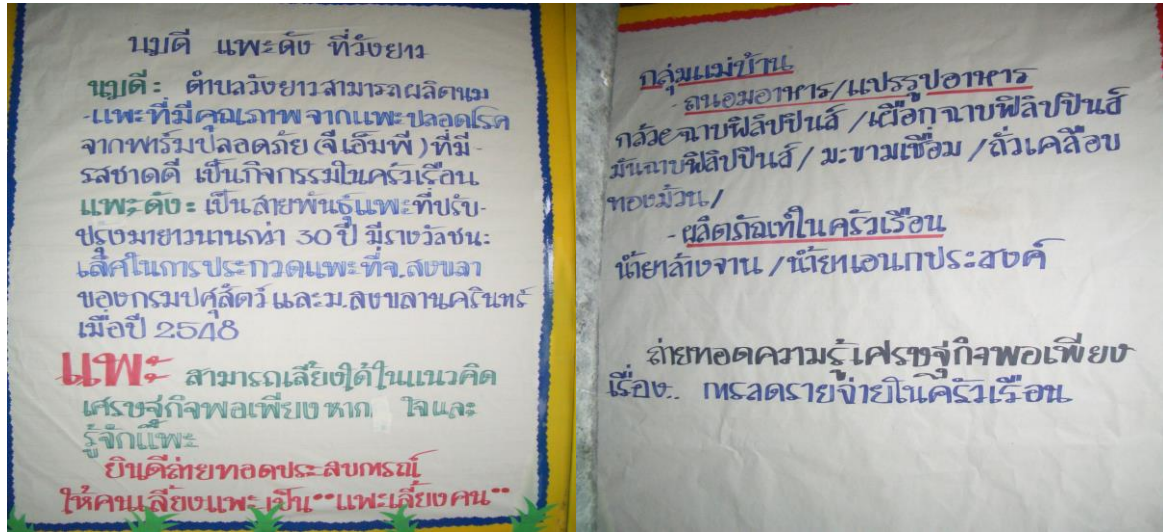 นมดี แพะดัง ที่วังยาว
นมดี : ตำบลวังยาวสามารถผลิตนม
-แพะที่มีคุณภาพ จากแพะปลอดโรค
จากฟาร์มปลอดภัย (จีเอ็มพี) ที่มี-
รสชาดดี เป็นกิจกรรมในครัวเรือน
แพะดัง : เป็นสายพันธุ์แพะที่ปรับ-
ปรุงมายาวนานกว่า 30 ปี มีรางวัลชนะ
เลิศในการประกวดแพะที่จ.สงขลา
ของกรมปศุสัตว์ และม.สงขลานครินทร์
เมื่อปี 2548
แพะ สามารถเลี้ยงได้ในแนวคิด
เศรษฐกิจพอเพียง หาก ใจและ
รู้จักแพะ
ยินดีถ่ายทอดประสบการณ์
ให้คนเลี้ยงแพะเป็น "แพะเลี้ยงคน"
กลุ่มแม่บ้าน
- ถนอมอาหาร/แปรรูปอาหาร
กล้วยฉาบฟิลิปปินส์ /เผือกฉาบฟิลิปปินส์
มันฉาบฟิลิปปินส์ / มะขามเชื่อม /ถั่วเคลือบ
ทองม้วน /
- ผลิตภัณฑ์ในครัวเรือน
น้ำยาล้างจาน /น้ำยาเอนกประสงค์
ถ่ายทอดความรู้เศรษฐกิจพอเพียง
เรื่อง.. การลดรายจ่ายในครัวเรือน